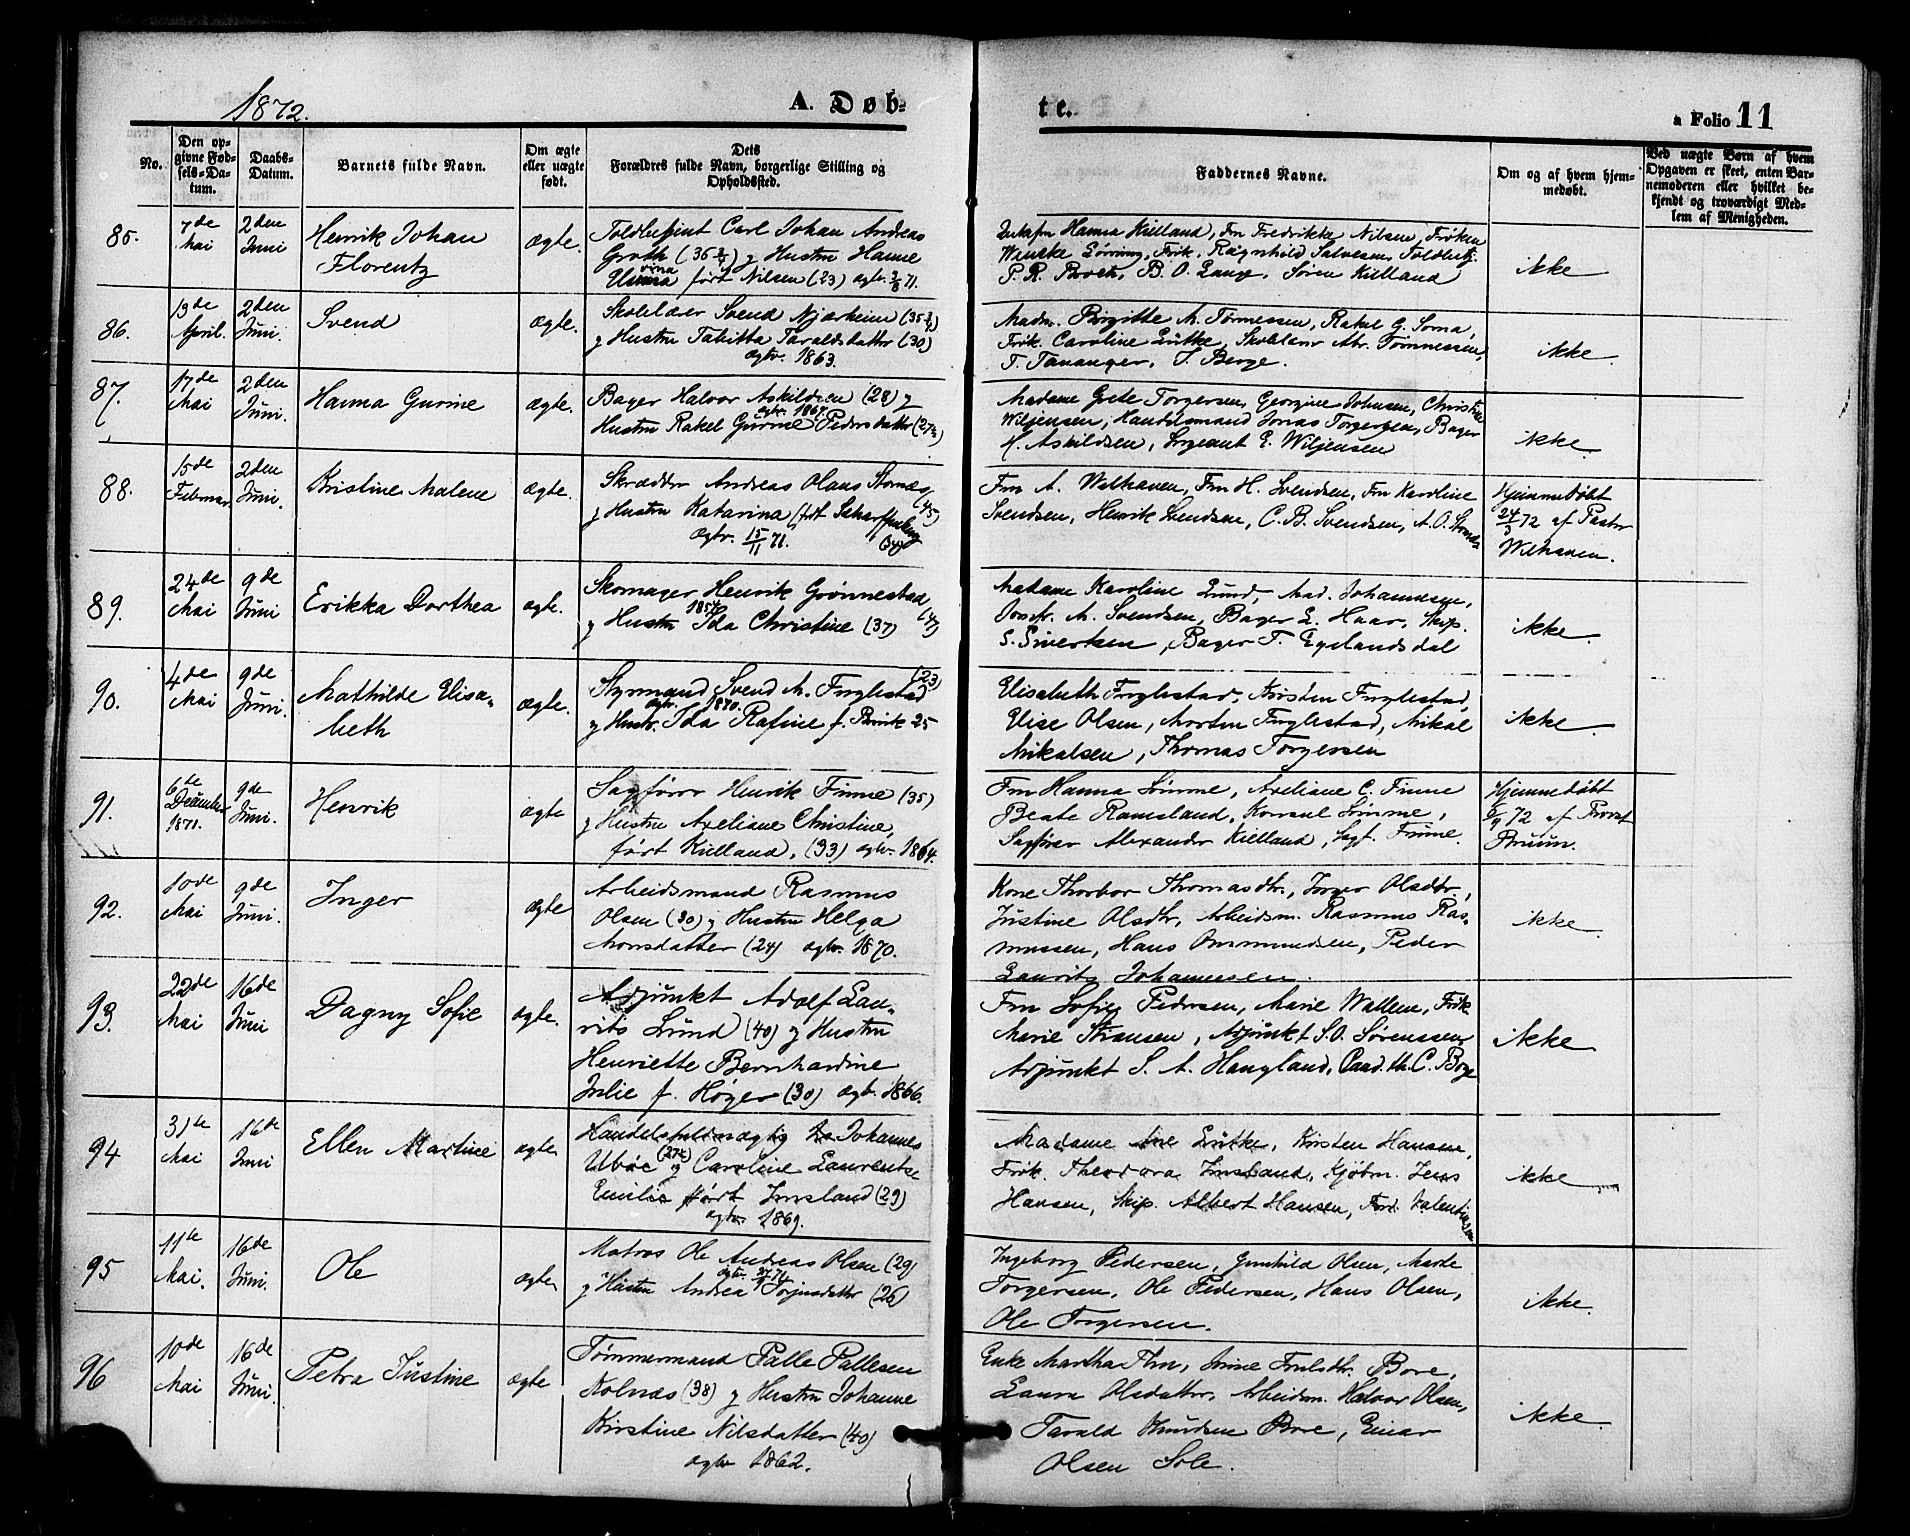 1872.
A. Døb-
te.
a Folio 11
No.
Den op-
givne Fød-
sels-Da-
tum.
Daabs-
Datum.
Barnets fulde Navn.
Om ægte
eller uægte
født.
Dets
Forældres fulde Navn, borgerlige Stilling og
Opholdssted.
Faddernes Navne.
Om og af hvem hjem-
medøbt.
Ved uægte Børn af hvem
Opgaven er skeet, enten Bar-
nemoderen eller hvilket be-
kjendt og troværdigt Med-
lem af Menigheden.
85.
7de
Mai
2den
Juni
Henrik Johan
Florentz
ægte.
Toldbetjent Carl Johan Andreas
Groth (36 3/4) og Hustru Hanne
født Nilsen (23) ægtv. 3/8 71.
Hanna Kielland, Fru Fredrikke Nilsen, Frøken
Wenske Løvning, Frøk. Ragnhild Salvesen, Toldbetj.
P. R. Broch, B. O. Lange, Søren Kielland
ikke
86.
13de
April.
2den
Juni.
Svend
Ægte.
Skolelærer Svend Njærheim (35 3/4)
og Hustru Tabitta Taraldsdatter (30)
ægtv. 1863.
Madm. Birgitte M. Tønnessen, Rakel G. Soma,
Frøk. Caroline Lütke, Skolelærer Abr. Tønnessen,
T. Tananger, T. Berge.
ikke
87.
17de
Mai
2den
Juni.
Hanna Gurine
ægte.
Bager Halvor Askildsen (28) og
ægtv. 1867.
Hustru Rakel Gurine Pedersdatter (27 1/2)
Madame Grete Torgersen, Georgine Johnsen, Christine
Wiljensen, Handelsmand Jonas Torgersen, Bager
H. Askildsen, Sergeant E. Wiljensen
ikke
88.
15de
Februar
2den
Juni.
Kristine Malene
ægte.
Skrædder Andreas Olaus Stornæs
(45)
og Hustru Katarina født Scharffenberg
ægtv. 15/11 71. (34)
Fru A. Welhaven, Fru H. Svendsen, Fru Karoline
Svendsen, Henrik Svendsen, C. B. Svendsen, A. O. Stornæs
Hjemmedøbt
24/3 72 af Pastor
Welhaven.
89.
24de
Mai
9de
Juni
Erikka Dorthea
ægte.
Skomager Henrik Grønnestad
1854
og Hustru Ida Christine (37)
Madame Karoline Lund, Mad. Johannesen,
M. Svendsen, Bager L. Haar, Skip.
S. Sivertsen, Bager T. Egelandsdal
ikke
90.
4de
Mai
9de
Juni.
Mathilde Elisa-
beth
ægte.
(23)
Styrmand Svend M. Fuglestad
ægtv. 1870.
og Hustr. Ida Rafine f. Brink 25
Elisabeth Fuglestad, Kristen Fuglestad,
Elise Olsen, Morten Fuglestad, Mikal
Mikalsen, Thomas Torgersen
ikke
91.
6te
December
1871.
9de
Juni.
Henrik
ægte
Sagfører Henrik Finne (35)
og Hustru Axeliane Christine,
født Kielland, (33) ægtv. 1864.
Fru Hanna Sømme, Axeliane C. Finne
Beate Ramsland, Konsul Sømme,
Sagfører Alexander Kielland, Sagf. Finne.
Hjemmedøbt
72 af Provst
Bruun.
92.
10de
Mai
9de
Juni.
Inger
ægte
Arbeidsmand Rasmus
Olsen (30) og Hustru Helga
Monsdatter (24) ægtv. 1870.
Kone Thorbor Thomasdtr., Inger Olsdtr.,
Justine Olsdtr, Arbeidsm. Rasmus Ras-
mussen, Hans Ommundsen, Peder
Laurits Johannesen.
ikke
93.
22de
Mai
16de
Juni
Dagny Sofie
ægte.
Adjunkt Adolf Lau-
rits Lund (40) og Hustru
Henriette Bernhardine
Julie f. Høyer (30) ægtv. 1866.
Fru Sofie Pedersen, Marie Wallem, Frøk.
Marie Steensen, Adjunkt S. O. Sørenssen,
Adjunkt S. A. Haugland, Cand. th. C. Borge
ikke
94
31te
Mai
16de
Juni
Ellen Martine
ægte
Handelsfuldmægtig Johannes
Ubøe (27 1/2) og Caroline Laurentze
Emilie født Imsland (29)
ægtv. 1869.
Madame Ane Lütke, Kirsten Hansen,
Frøk. Theodora Imsland, Kjøbm. Jens
Hansen, Skip. Albert Hansen, Ferd. Valentinsen
ikke
95
11te
Mai.
16de
Juni.
Ole
ægte
Matros Ole Andreas Olsen (29)
og Hustru Andrea Torjusdatter (26)
Ingeborg Pedersen, Gunhild Olsen, Marte
Torgersen, Ole Pedersen, Hans Olsen,
Ole Torgersen.
ikke.
96
10de
Mai
16de
Juni.
Petra Justine
ægte
Tømmermand Palle Pallesen
Kolnæs (38) og Hustru Johanne
Kirstine Nilsdatter (40)
ægtv 1862.
Enke Martha Thu, Bore,
Laura Olsdatter, Arbeidsm. Halvor Olsen,
Tarald Knudsen Bore, Einar
Olsen Sole.
ikke